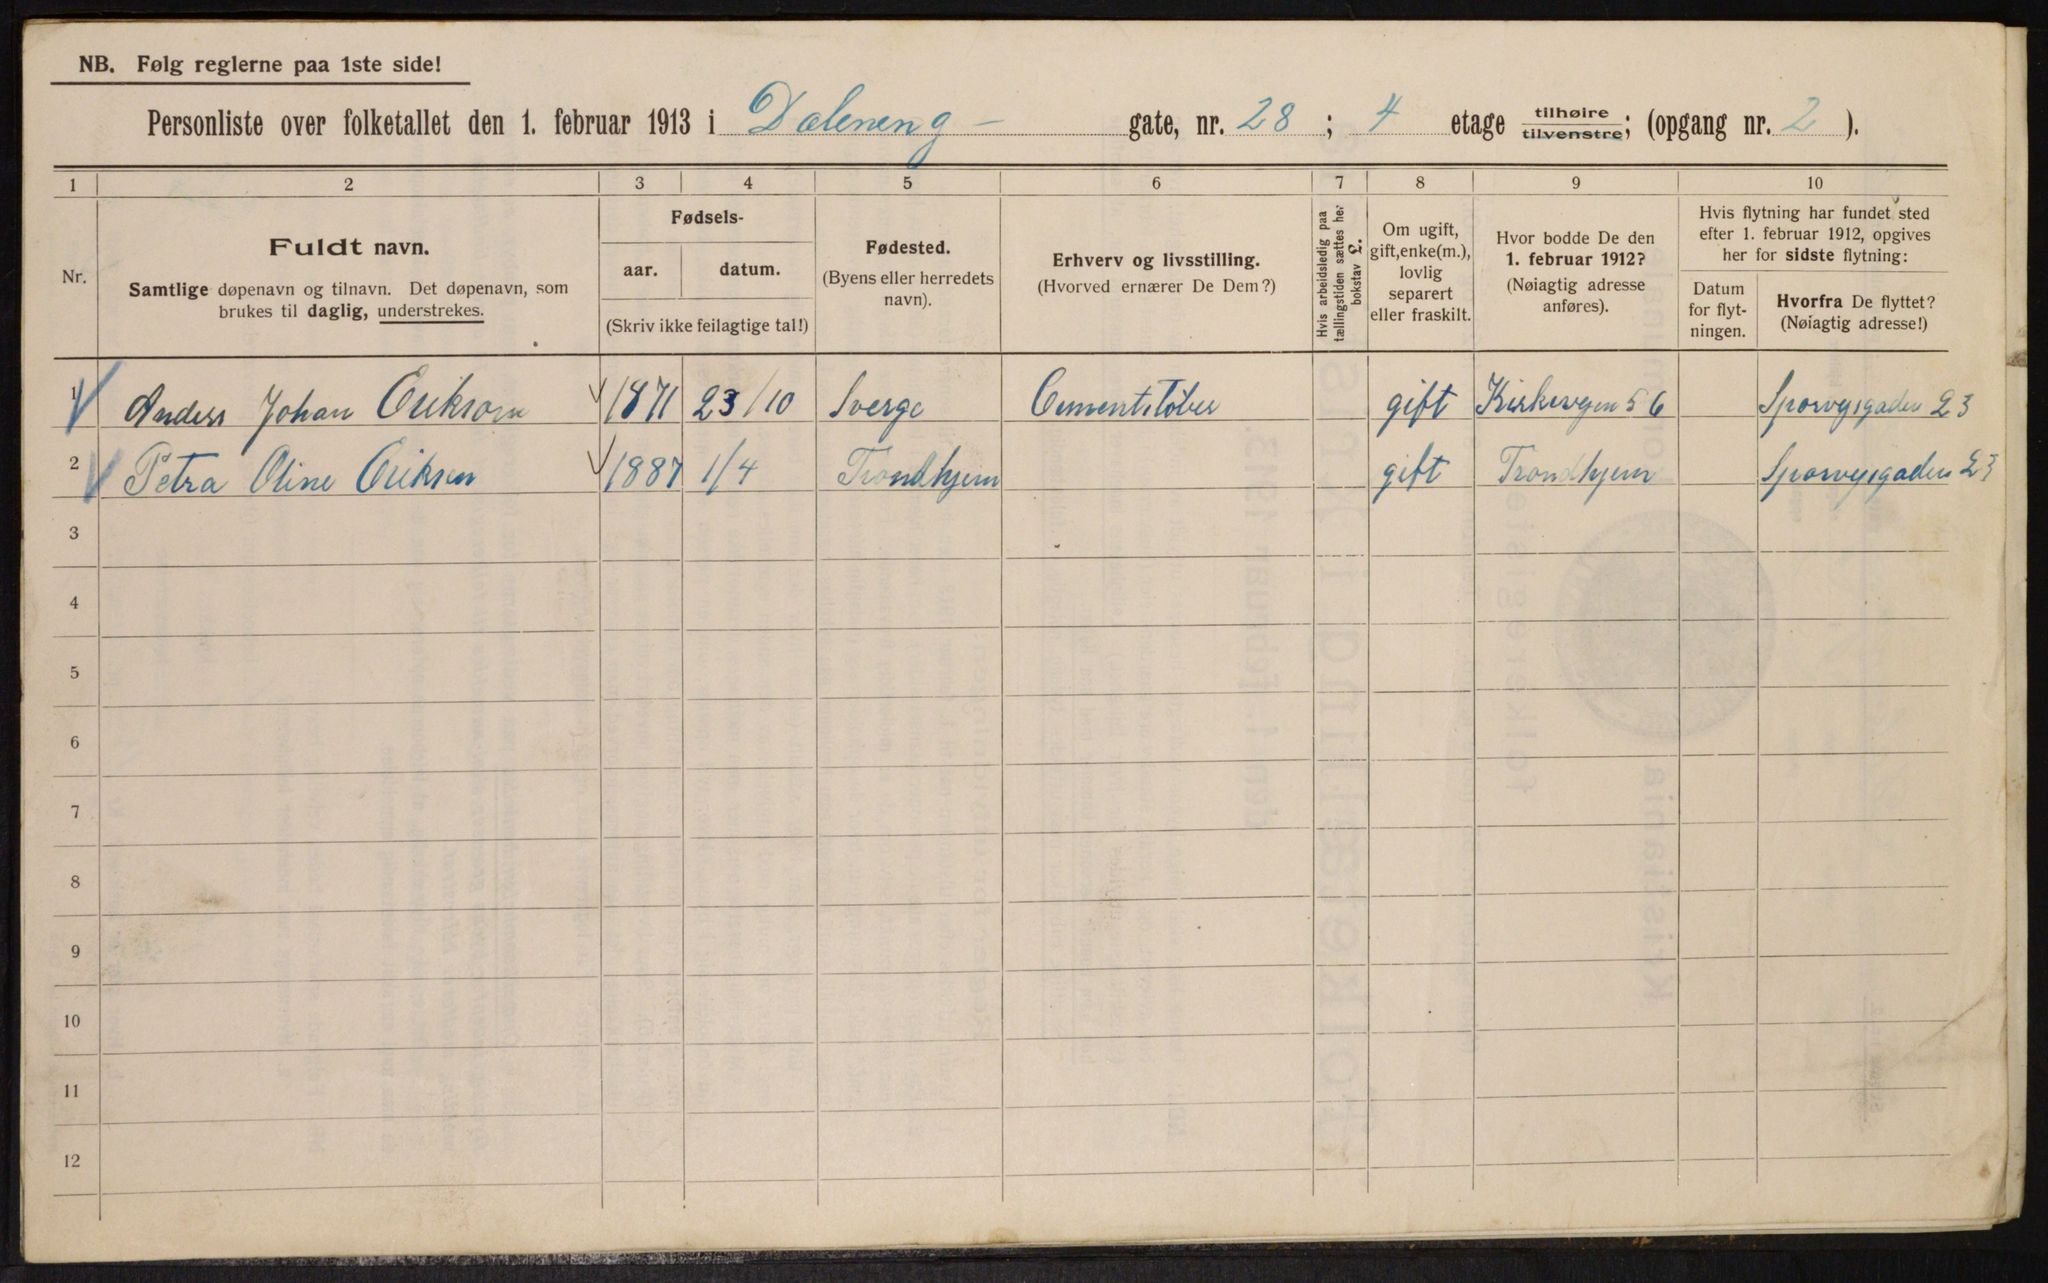 NB. Følg reglerne paa 1ste side!
Personliste over folketallet den 1. februar 1913 i Dæleneng - gate, nr. 28 ; 4 etage tilhøire tilvenstre; (opgang nr. 2 ).
1 2 3 4 5 6 7 8 9 10
Nr.
Fuldt navn.
Samtlige døpenavn og tilnavn. Det døpenavn, som
brukes til daglig, understrekes.
Fødsels-
aar. datum.
(Skriv ikke feilagtige tal!)
Fødested.
(Byens eller herredets
navn).
Erhverv og livsstilling.
(Hvorved ernærer De Dem?)
Hvis arbeidsledig paa
tællingstiden sættes her
bokstav L.
Om ugift,
gift, enke(m.),
lovlig
separert
eller fraskilt.
Hvor bodde De den
1. februar 1912?
(Nøiagtig adresse
anføres).
Hvis flytning har fundet sted
efter 1. februar 1912, opgives
her for sidste flytning:
Datum
for flyt-
ningen.
Hvorfra De flyttet?
(Nøiagtig adresse!)
1 Anders Johan Erikson 1871 23/10 Sverge Cementstøber gift Kirkevgen 56 Sporvejsgaden 23
2 Petra Oline Eriksen 1887 1/4 Trondhjem gift Trondhjem Sporvejsgaden 23
3
4
5
6
7
8
9
10
11
12